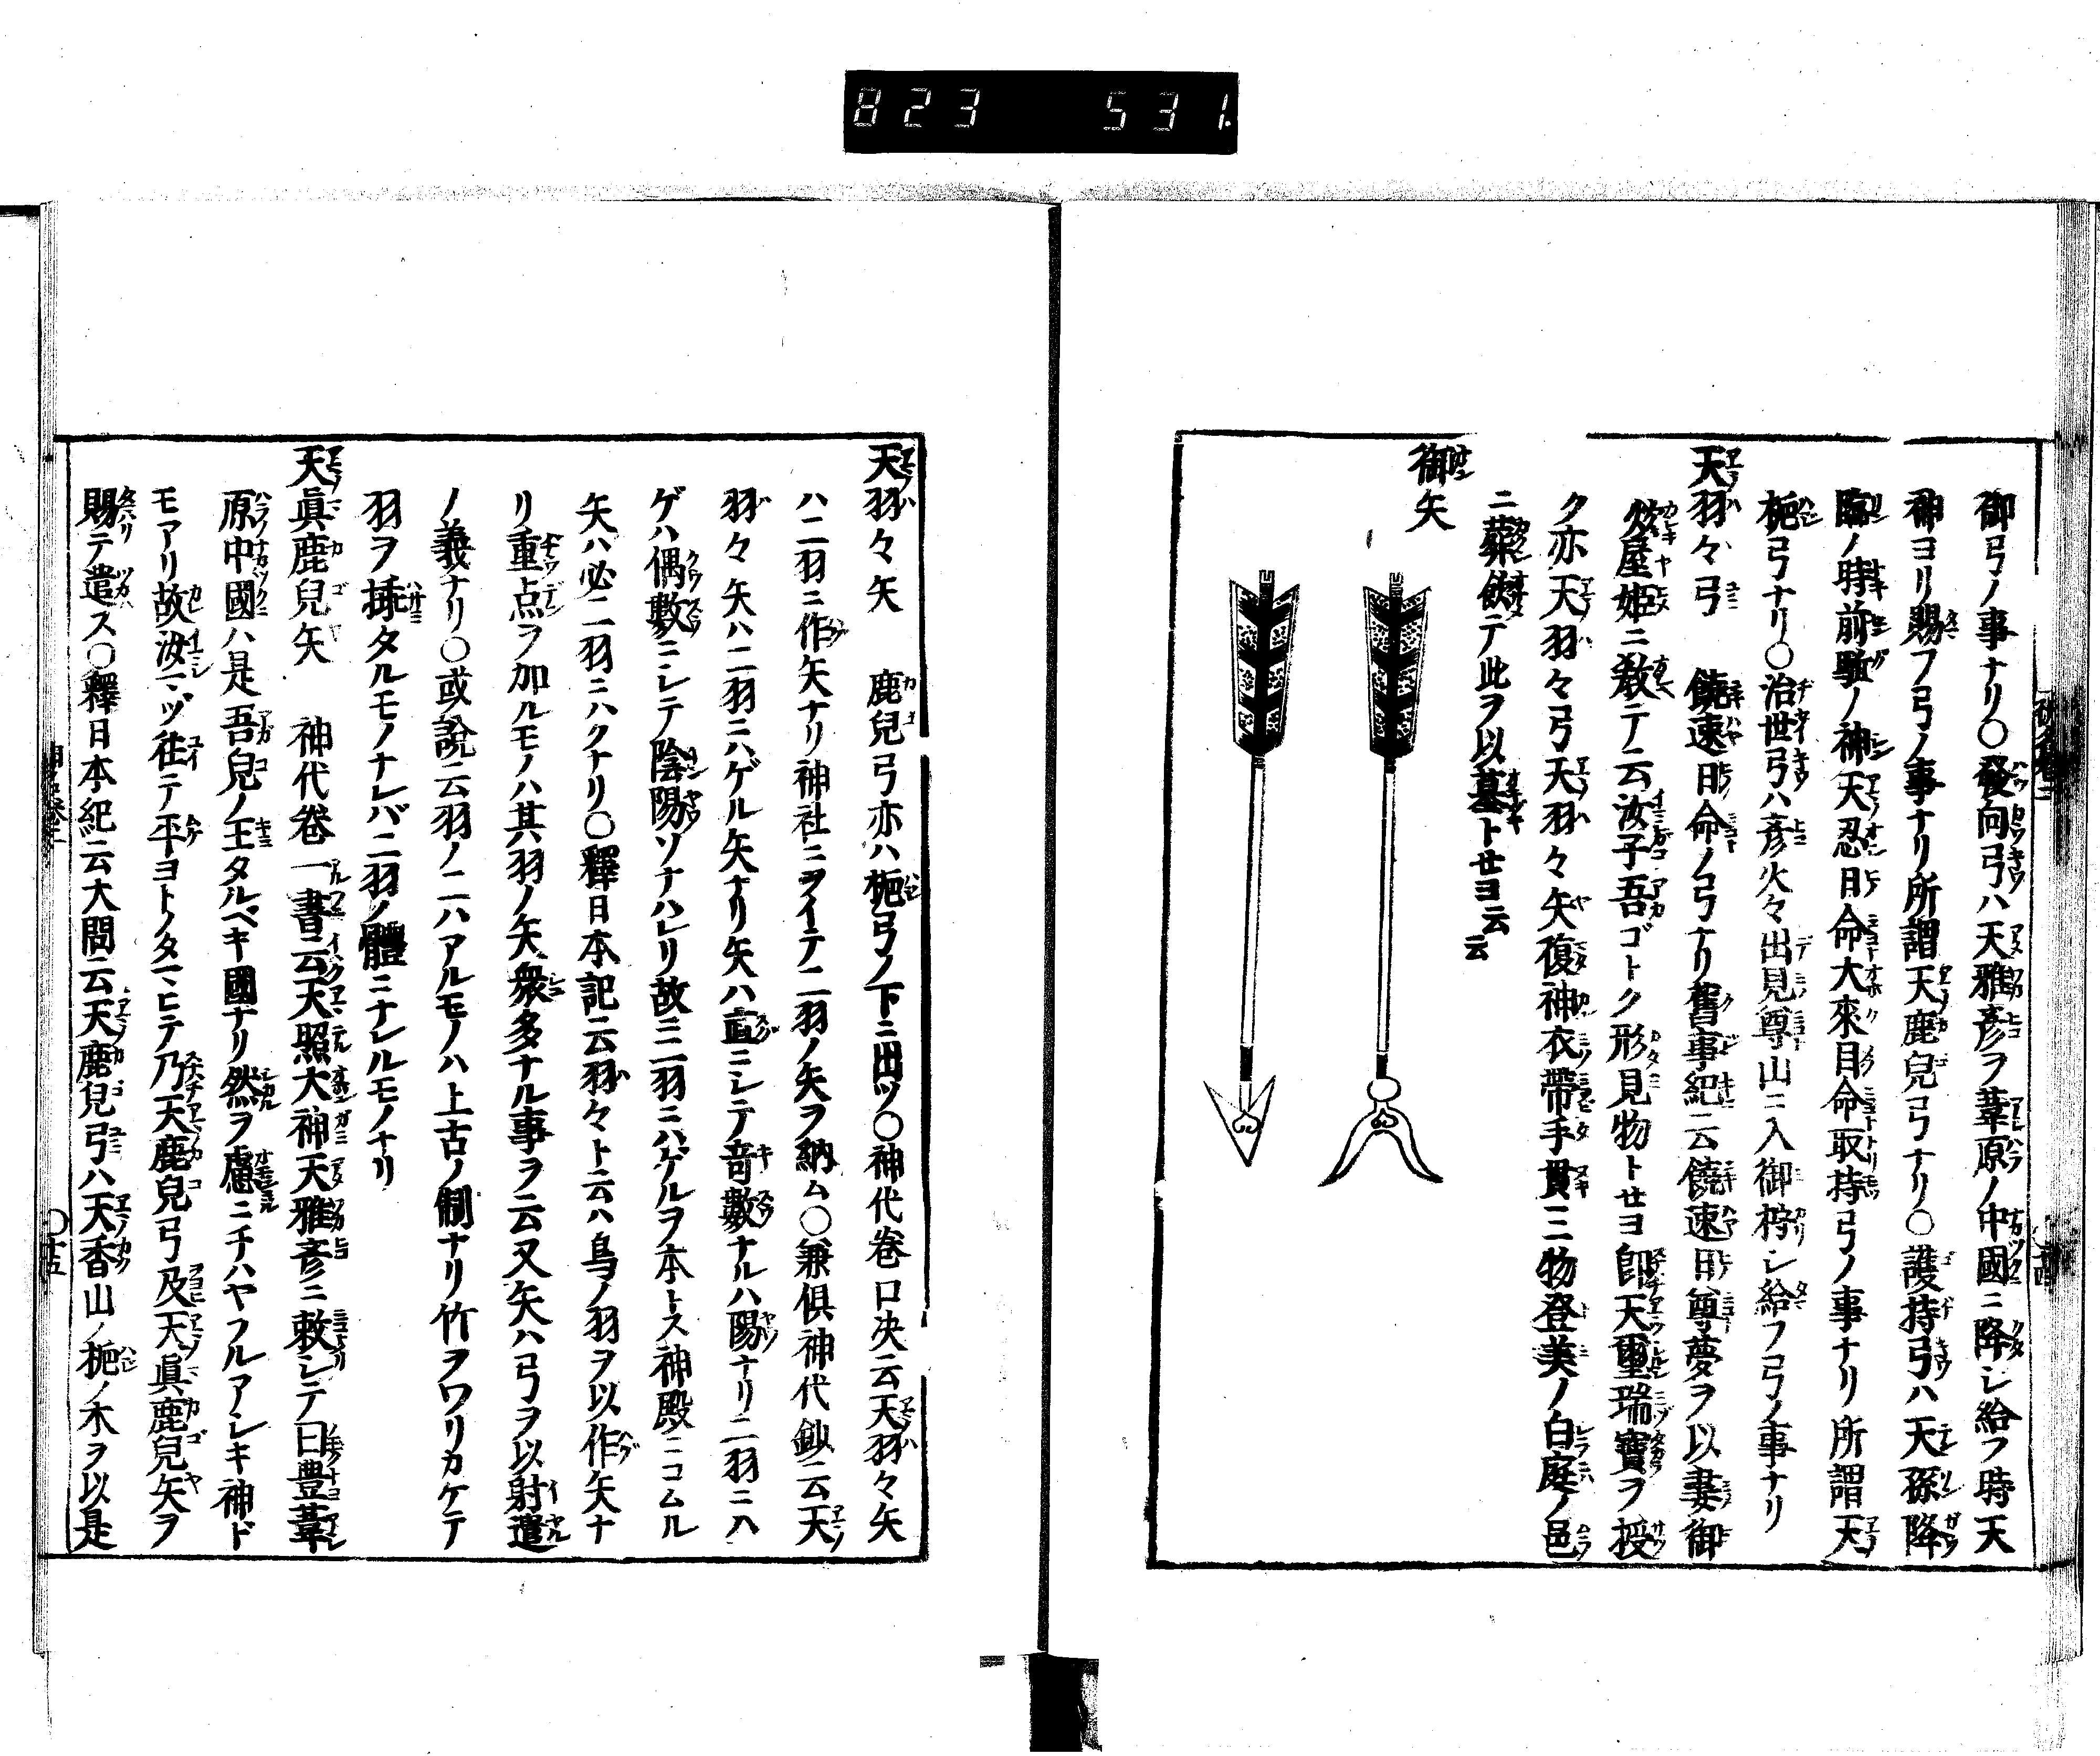 823 531
御弓ノ事ナリ○發向弓ハ天雅彦ヲ葦原ノ中國ニ降シ給フ時天
神ヨリ賜フ弓ノ事ナリ所謂天鹿兒弓ナリ○護持弓ハ天孫降
臨ノ時前駈ノ神天忍日命大來目命取持弓ノ事ナリ所謂天
梔弓ナリ○治世弓ハ彦火々出見尊山ニ入御狩シ給フ弓ノ事ナリ
天羽々弓 饒速日命ノ弓ナリ舊事紀ニ云饒速日尊夢ヲ以妻御
炊屋姫ニ敎テ云汝子吾ゴトク形見物トセヨ卽天璽瑞寶ヲ授
ク亦天羽々弓天羽々矢復神衣帶手貫三物登美ノ白庭ノ邑
ニ葬斂テ此ヲ以墓トセヨ云云
御矢
天羽々矢 鹿兒弓亦ハ梔弓ノ下ニ出ツ○神代巻口決云天羽々矢
ハ二羽ニ作矢ナリ神社ニヲイテ二羽ノ矢ヲ納ム○兼倶神代鈔云天
羽々矢ハ二羽ニハゲル矢ナリ矢ハ直ニシテ奇數ナルハ陽ナリ二羽ニハ
ゲハ偶數ニシテ陰陽ソナハレリ故ニ二羽ニハゲルヲ本トス神殿ニコムル
矢ハ必二羽ニハクナリ○釋日本記云羽々ト云ハ鳥ノ羽ヲ以作矢ナ
リ重点ヲ加ルモノハ其羽ノ矢衆多ナル事ヲ云又矢ハ弓ヲ以射遣
ノ義ナリ○或説云羽ノ二ハアルモノハ上古ノ制ナリ竹ヲワリカケテ
羽ヲ挿タルモノナレバ二羽ノ體ニナレルモノナリ
天眞鹿兒矢 神代巻一書云天照大神天雅彦ニ敕シテ曰豊葦
原中國ハ是吾兒ノ王タルベキ國ナリ然ヲ慮ニチハヤフルアレキ神ド
モアリ故汝マヅ徃テ平ヨトノタマヒテ乃天鹿兒弓及天眞鹿兒矢ヲ
賜テ遣ス○釋日本紀云大問云天鹿兒弓ハ天香山ノ梔ノ木ヲ以是